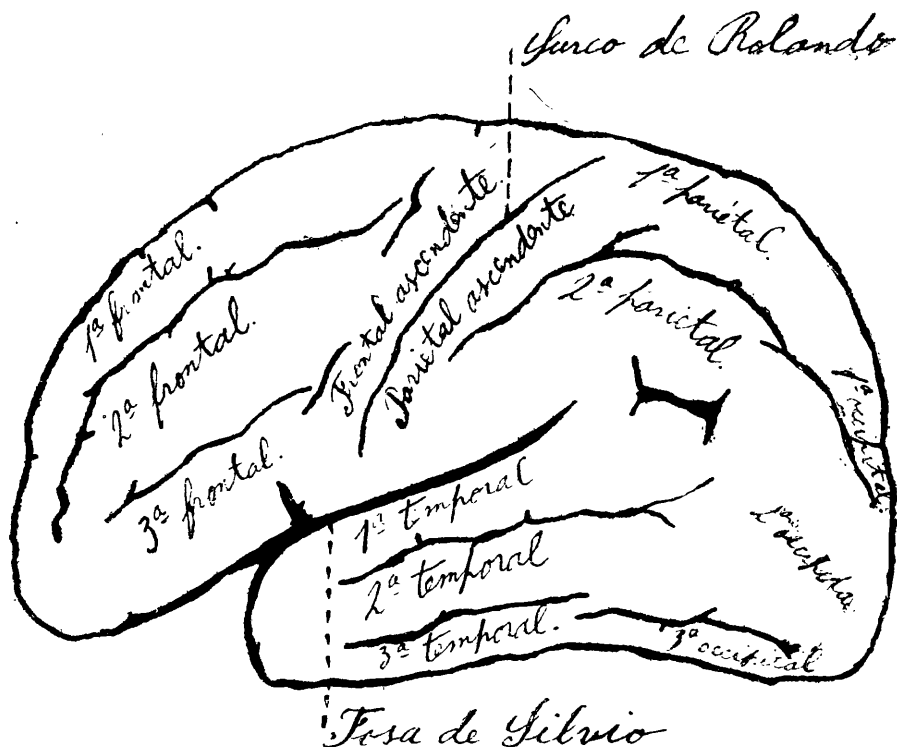 Surco de Rolando
1ª frontal.
2ª frontal.
3ª frontal.
Frontal ascendente.
Parietal ascendente
1ª pariétal.
2ª parietal.
1ª occipital
2ª occipital
3ª occipital
1ª temporal
2ª temporal
3ª temporal.
Fosa de Silvio